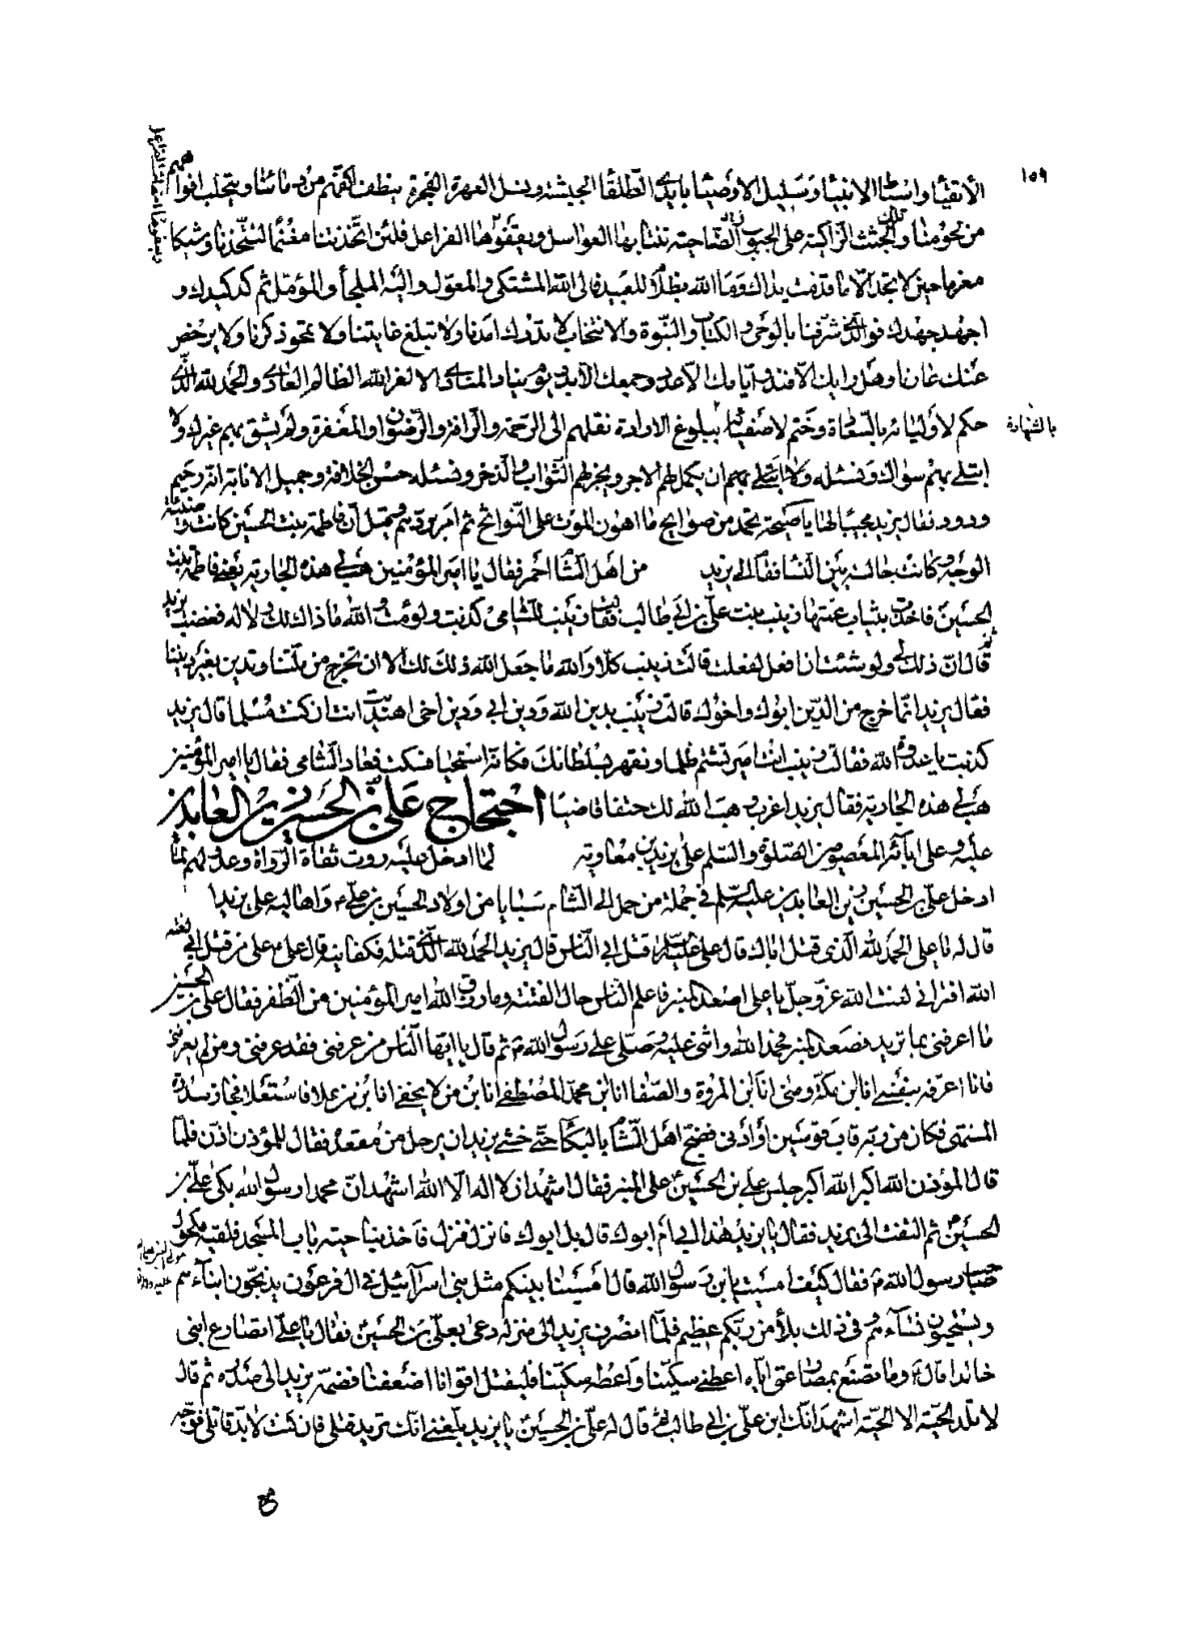 ١٥٩
الأتقياء واسباط الانبياء وسليل الاوصياء بايدى الطلقاء الخبيثة ونسل العهرة الفجرة ينطف اكفهم من دمائنا ويتحلب افواههم
من لحومنا وتلك الجثث الزاكية على الجبوب الضاحية تنتابها العواسل ويعفوها الفراعل فلئن اتخذتنا مغنما لتتخذنا وشيكا
مغرما حين لا تجد الا ما قدمت يداك وما الله بظلام للعبيد فالى الله المشتكى والمعول واليه الملجأ والمؤمل ثم كد كيدك و
اجهد جهدك فو الذى شرفنا بالوحى والكتاب والنبوة والانتخاب لا تدرك امدنا ولا تبلغ غايتنا ولا تمحو ذكرنا ولا يرحض
عنك عارنا وهل رايك الا فند وايامك الا عدد وجمعك الا بدد يوم ينادى المنادى الا لعن الله الظالم العادى والحمد لله الذى
حكم لأوليائه بالسعادة وختم لاصفيائه ببلوغ الارادة نقلهم الى الرحمة والرافة والرضوان والمغفرة ولم يشق بهم غيرك ولا
بالشهادة
ابتلى بهم سواك ونسئله ان يكمل لهم الاجر ويجزل لهم الثواب والذخر ونسئله حسن الخلافة وجميل الانابة انه رحيم
ودود فقال يزيد مجيبا لها يا صيحة تحمد من صوايح ما اهون الموت على النوائح ثم امر بردهم وقيل ان فاطمة بنت الحسين كانت وضيئة
الوجه وكانت جالسة بين النساء فقام الى يزيد من اهل الشام احمر فقال يا امير المؤمنين هب لى هذه الجارية يعنى فاطمة بنت
الحسين فاخذت بثياب عمتها زينب بنت على بن ابى طالب فقالت زينب للشامى كذبت ولومت والله ما ذاك لك ولا له فغضب يزيد
ثم قال ان ذلك لى ولو شئت ان افعل لفعلت قالت زينب كلا والله ما جعل الله ذلك لك الا ان تخرج من ملتنا وتدين بغير ديننا
فقال يزيد انما خرج من الدين ابوك واخوك قالت زينب بدين الله ودين ابى ودين اخى اهتديت انت ان كنت مسلما قال يزيد
كذبت يا عدوة الله فقالت زينب انت امير تشتم ظلما وتقهر بسلطانك فكانه استحيا فسكت فعاد الشامى فقال يا امير المؤمنين
هب لى هذه الجارية فقال يزيد اعزب وهب الله لك حتفا قاضيا احتجاج على بن الحسين زين العابدين
عليه وعلى ابائه المعصومين الصلوة والسلم على يزيد بن معاوية لما ادخل عليه روت ثقاة الرواة وعدولهم لما
ادخل على بن الحسين زين العابدين عليه السلم فى جملة من حمل الى الشام سبايا من اولاد الحسين بن على ع واهاليه على يزيد
قال له يا على الحمد لله الذى قتل اباك قال على عليه السلم قتل ابى الناس قال يزيد الحمد لله الذى قتله فكفانيه قال على ع على من قتل ابى لعنة
الله افترانى لعنت الله عز وجل يا على اصعد المنبر فاعلم الناس حال الفتنة وما رزق الله امير المؤمنين من الظفر فقال على بن الحسين
ما اعرفنى بما تريد فصعد المنبر فحمد الله واثنى عليه وصلى على رسول الله ثم قال يا ايها الناس من عرفنى فقد عرفنى ومن لم يعرفنى
فانا اعرفه بنفسى انا ابن مكة ومنى انا ابن المروة والصفا انا ابن محمد المصطفى انا ابن من لا يخفى انا ابن من علا فاستعلا فجاز سدرة
المنتهى فكان من ربه قاب قوسين او ادنى فضج اهل الشام بالبكاء حتى خشى يزيد ان يرحل من مقعده فقال للمؤذن اذن فلما
قال المؤذن الله اكبر الله اكبر جلس على بن الحسين على المنبر فقال اشهد ان لا اله الا الله اشهد ان محمدا رسول الله بكى على بن
الحسين ثم التفت الى يزيد فقال يا يزيد هذا ابى ام ابوك قال بل ابوك فانزل فنزل فاخذ ناحية باب المسجد فلقيه مكحول
صاحب رسول الله ص فقال كيف امسيت يا بن رسول الله قال امسينا بينكم مثل بنى اسرائيل فى ال فرعون يذبحون ابنائهم
ويستحيون نسائهم وفى ذلك بلاء من ربكم عظيم فلما انصرف يزيد الى منزله دعى بعلى بن الحسين فقال يا على اتصارع ابنى
خالدا قال ع وما تصنع بمصارعتى اياه اعطنى سكينا واعطه سكينا فليقتل اقوانا اضعفنا فضمه يزيد الى صدره ثم قال
لا تلد الحية الا الحية اشهد انك ابن على بن ابى طالب ثم قال له على بن الحسين يا يزيد بلغنى انك تريد قتلى فان كنت لا بد قاتلى فوجه